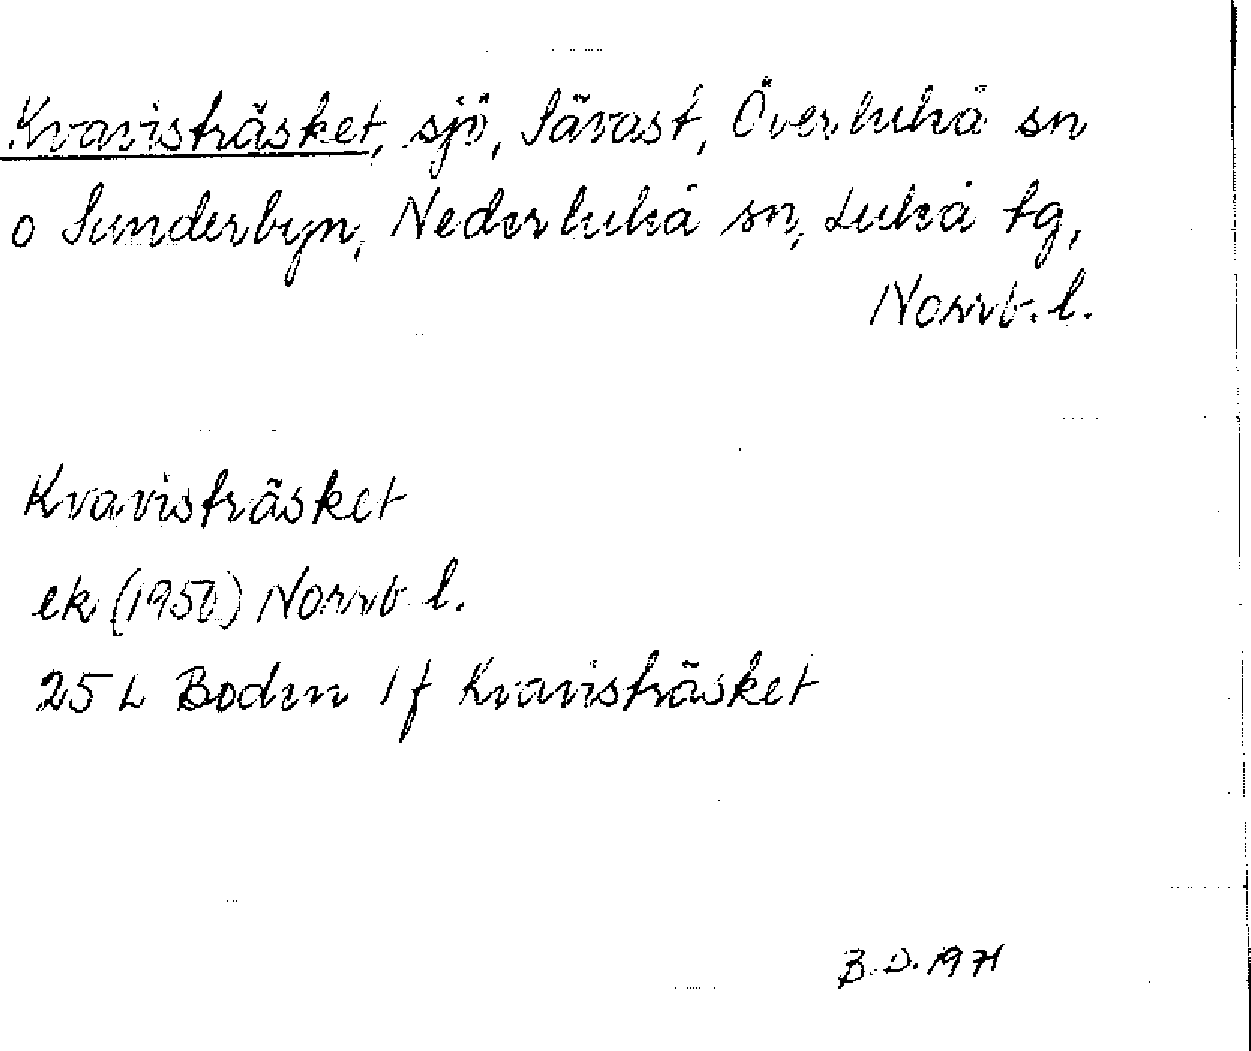 Kvavisträsket, sjö, Sävast, Överluleå sn
o Sunderbyn, Nederluleå sn, Luleå tg,
Norrb. l.
Kvavisträsket
ek (1950) Norrb l.
25 L Boden 1 f Kvavisträsket
B.D. 1971